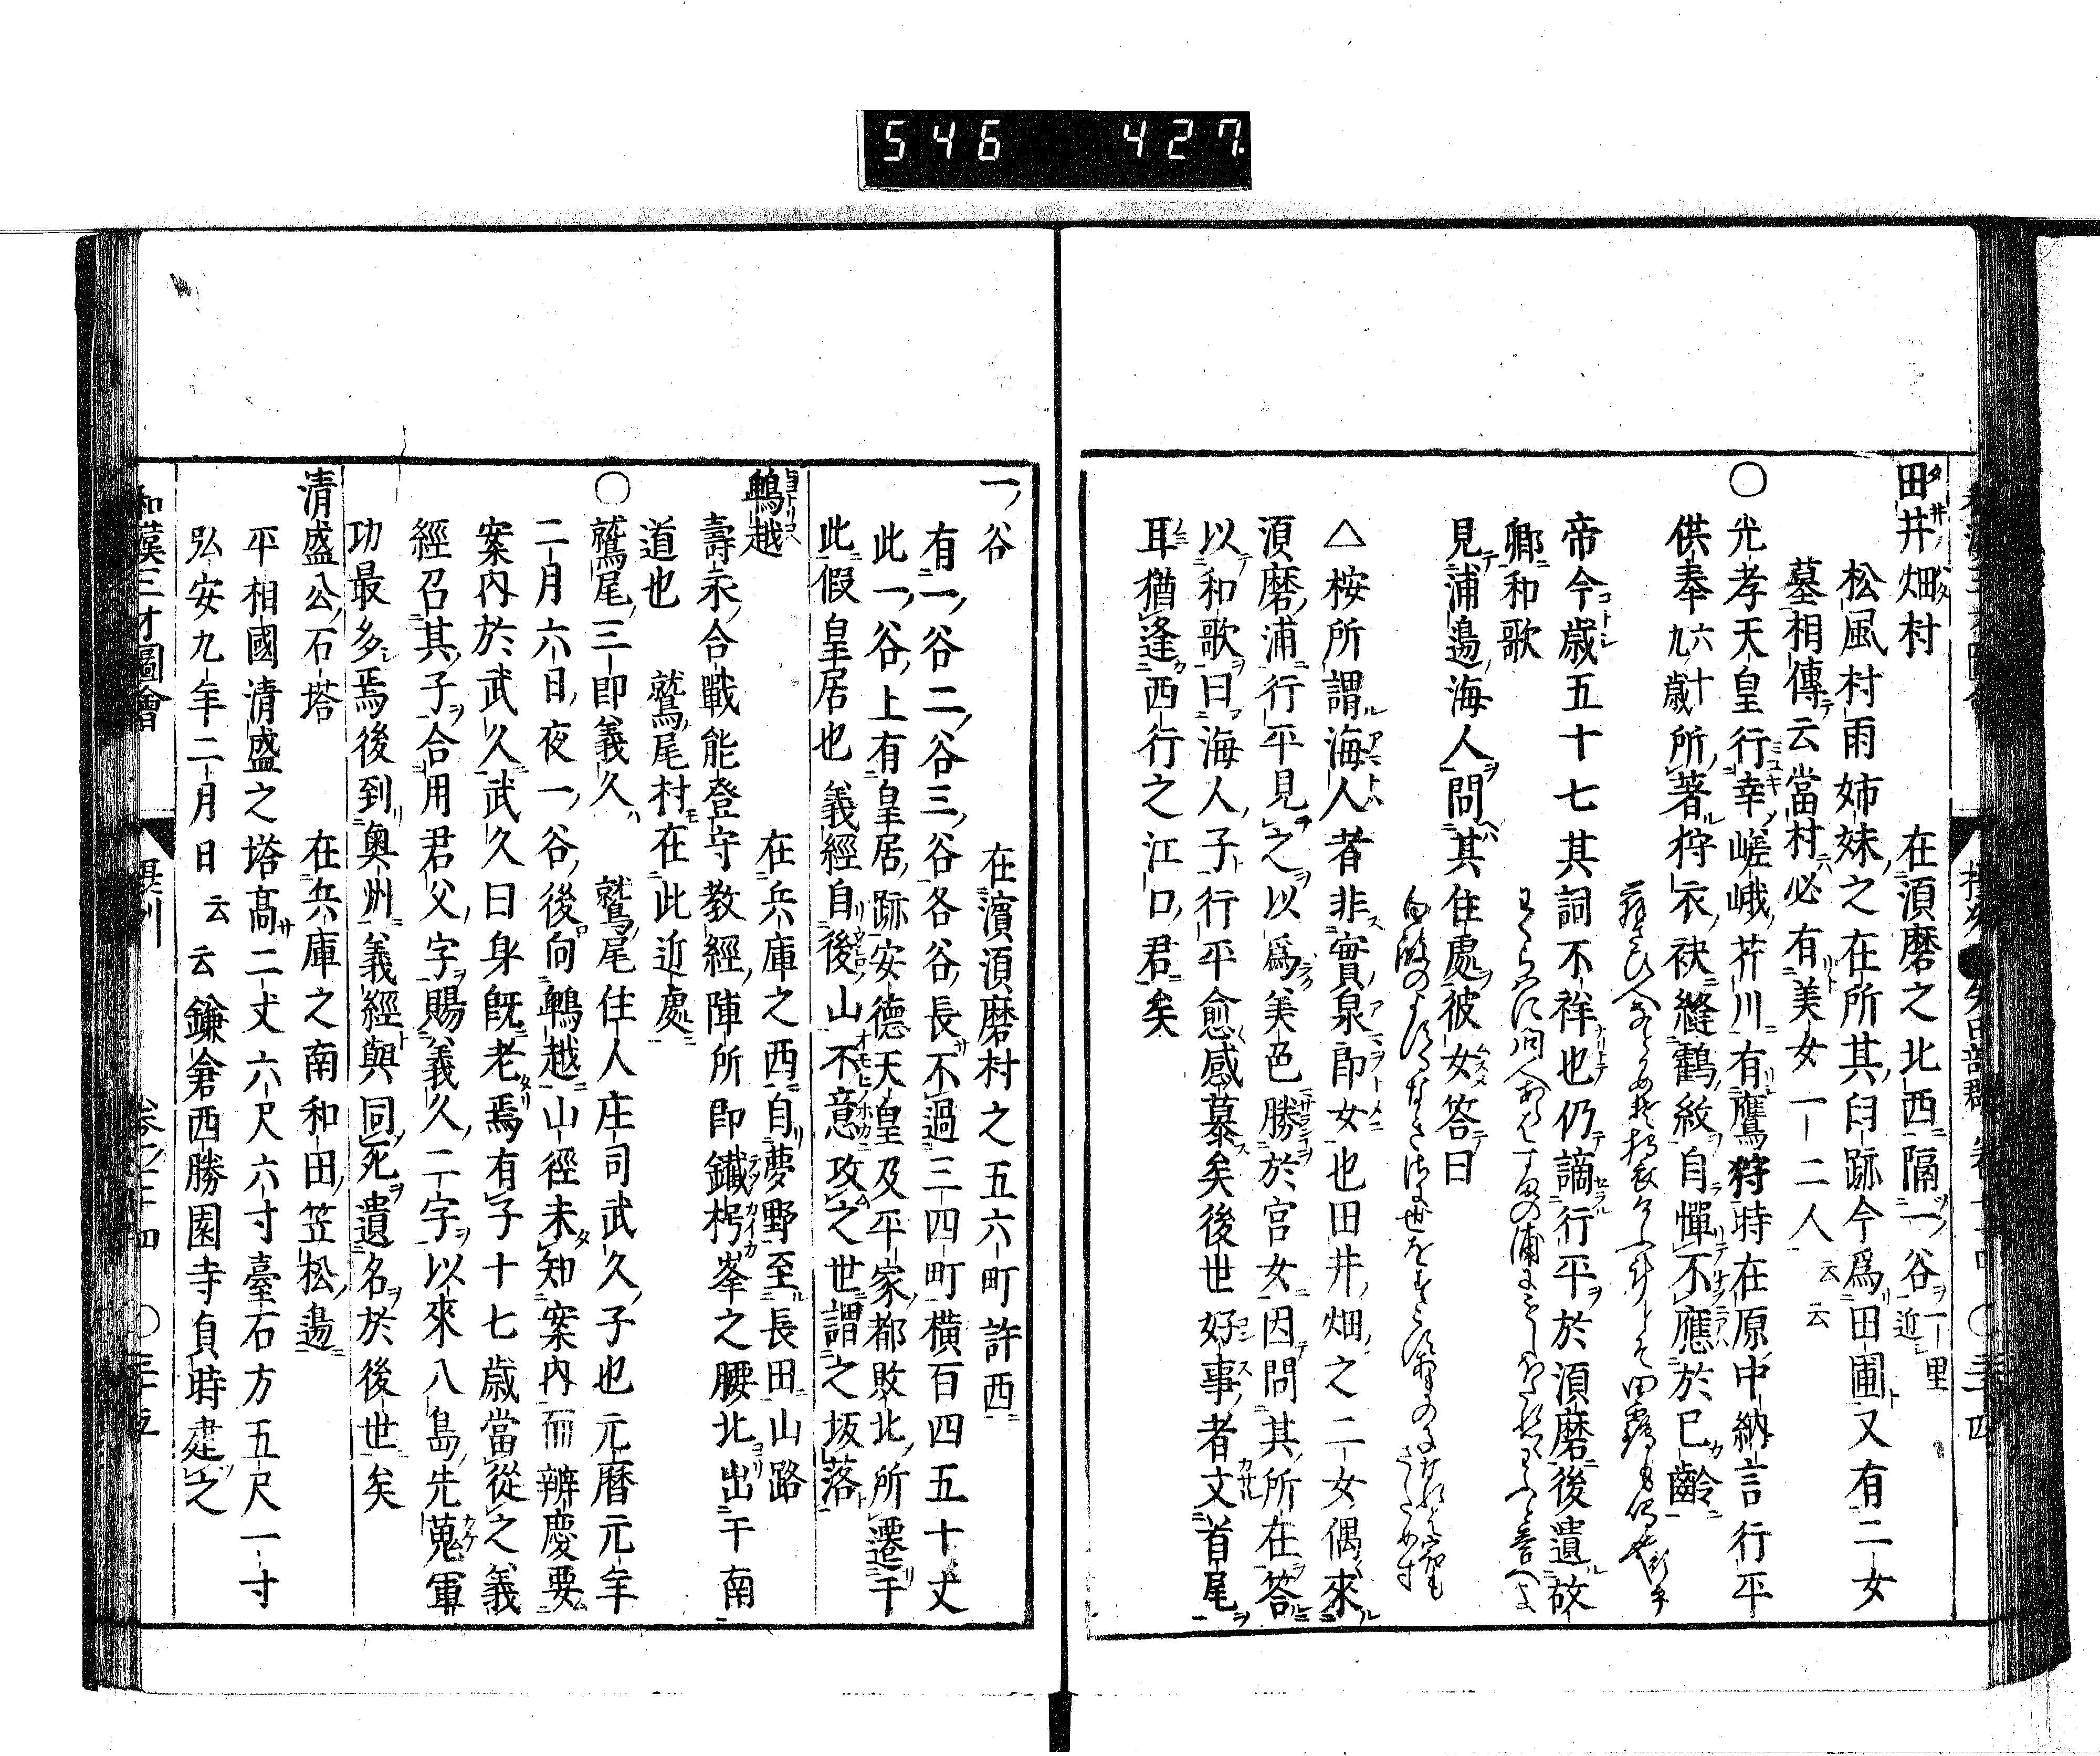 546 427
田井畑村 在湏磨之北西隔一谷近一里
松風村雨姉妹之在所其臼跡今爲田圃又有二女
墓相傳云當村必有美女一二人云云
○光孝天皇行幸嵯峨芹川有鷹狩時在原中納言行平
供奉六十九歳所著狩衣袂縫鶴紋自憚不應於已齡
帝今歳五十七其詞不祥也仍謫行平於湏磨後遺故
鄉和歌
見浦邉海人問其住處彼女答曰
白波のよするなきさに世をすこす
△桉所謂海人者非實泉郎女也田井畑之二女偶來
湏磨浦行平見之以爲美色勝於宮女因問其所在答
以和歌曰海人子行平愈感慕矣後世好事者文首尾
耳猶逢西行之江口君矣
一谷 在濱湏磨村之五六町許西
有一谷二谷三谷各谷長不過三四町横百四五十丈
此一谷上有皇居跡安德天皇及平家都敗北所遷于
此假皇居也 義經自後山不意攻之世謂之坂落
鵯越 在兵庫之西自夢野至長田山路
壽永合戰能登守教經陣所即鐵枴峯之腰北出于南
道也 鷲尾村在此近處
○鷲尾三郎義久 鷲尾住人庄司武久子也元暦元年
二月六日夜一谷後向鵯越山徑未知案内而辨慶要
案内於武久武久曰身既老焉有子十七歳當從之義
經召其子合用君父字賜義久二字以來八島先蒐軍
功最多焉後到奥州義經與同死遺名於後世矣
清盛公石塔 在兵庫之南和田笠松邉
平相國清盛之塔髙二丈六尺六寸臺石方五尺一寸
弘安九年二月日云云鎌倉西勝園寺貞時建之
和漢三才圖會 攝州 卷七十四 ○三十五